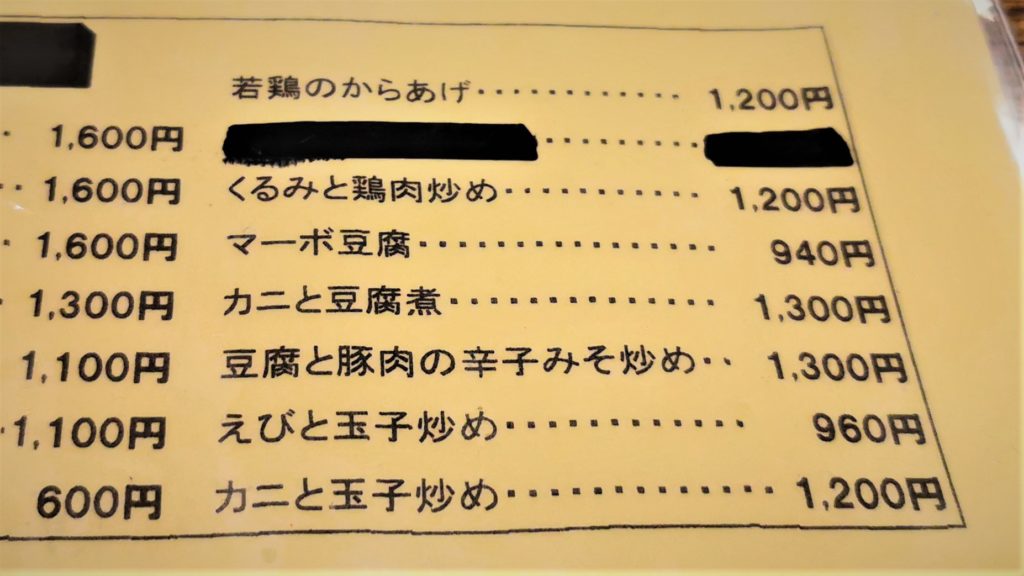 若鶏のからあげ············ 1,200円
·· 1,600円 ·········
·· 1,600円 くるみと鶏肉炒め············ 1,200円
· 1,600円 マーボ豆腐················· 940円
· 1,300円 カニと豆腐煮··············· 1,300円
1,100円 豆腐と豚肉の辛子みそ炒め·· 1,300円
·1,100円 えびと玉子炒め············· 960円
600円 カニと玉子炒め·············· 1,200円